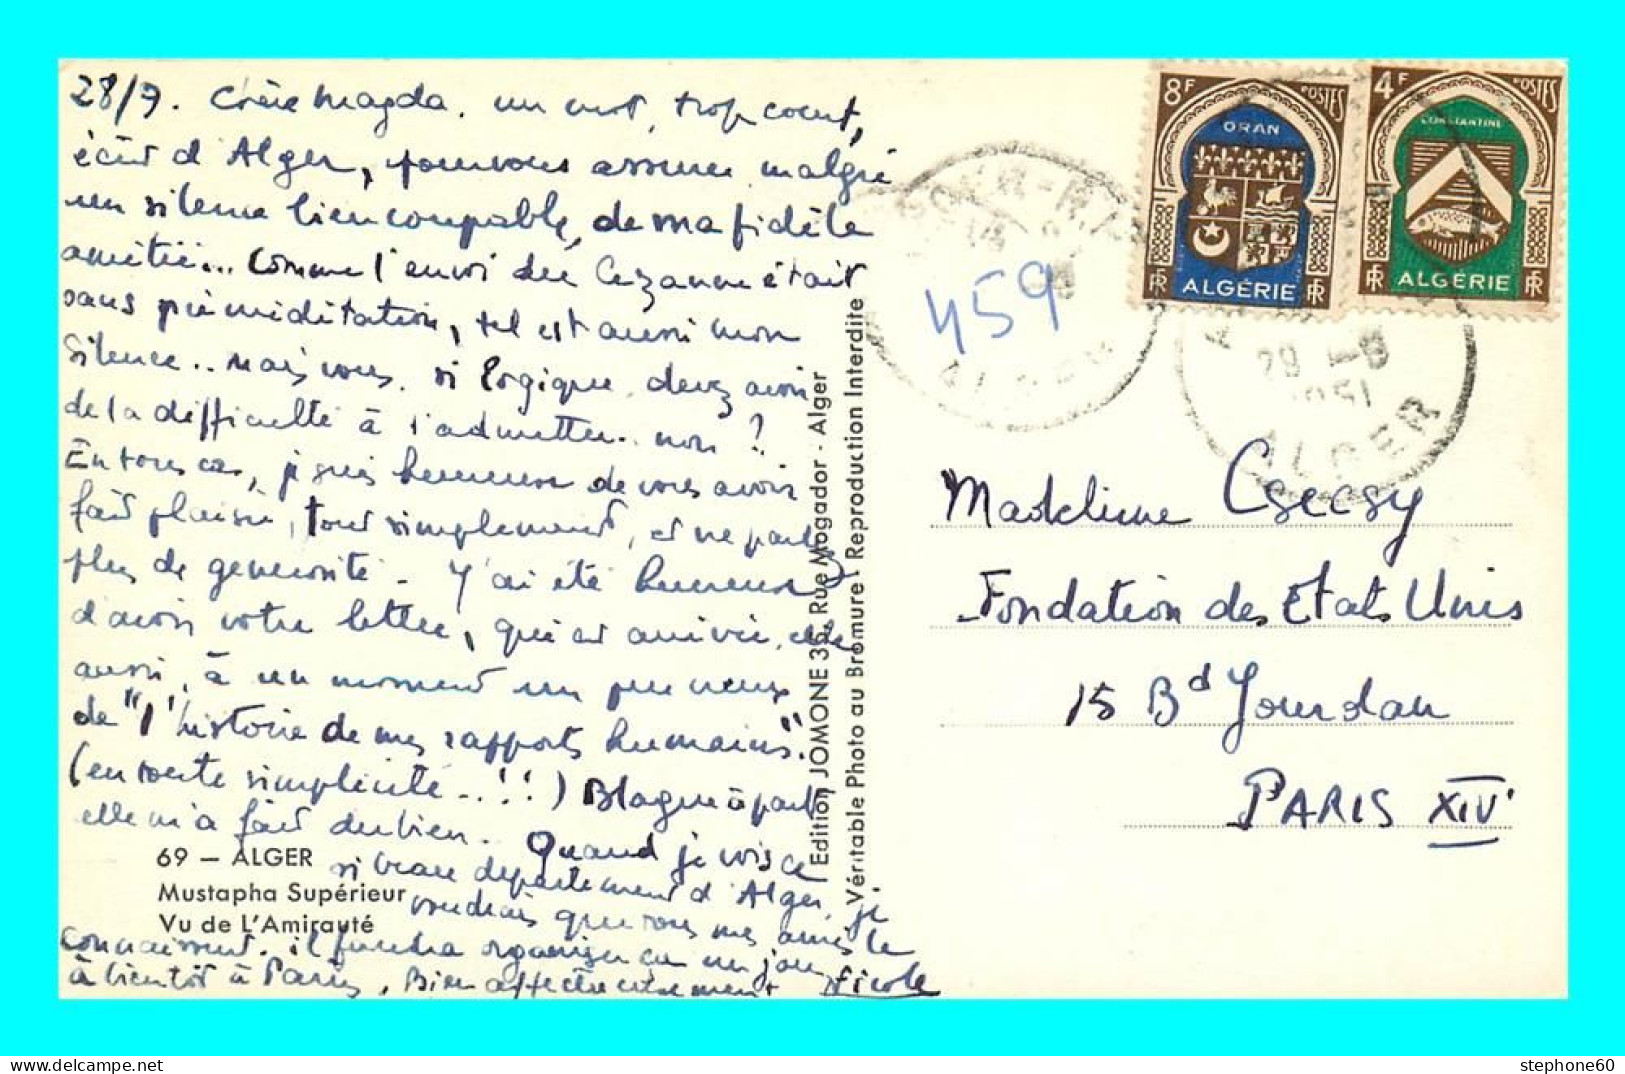 28/7. Chère Magda. un mot, trop court,
écrit d'Alger, pour vous assurer malgré
un silence bien coupable, de ma fidèle
amitié... Comme l'envoi des Cezanne était
sans préméditation, tel est aussi mon
silence.. mais vous, si logique, devez avoir
de la difficulté à l'admettre.. non ?
En tous cas, je suis heureuse de vous avoir
fait plaisir, tout simplement, et ne parlez
plus de generosité - J'ai été heureuse
d'avoir votre lettre, qui est arrivée, elle
aussi, à un moment un peu creux
de "l'histoire de mes rapports humains."
(en toute simplicité...!!) Blague à part
elle m'a fait du bien.. Quand je vois ce
si beau departement d'Alger, je
voudrais que tous mes amis le
connaissent. il faudra organiser ça un jour
à bientôt à Paris, Bien affectueusement Nicole
69 — ALGER
Mustapha Supérieur
Vu de L'Amirauté
Edition JOMONE 35, Rue Mogador - Alger
Véritable Photo au Bromure - Reproduction Interdite
459
ALGER
29 1951
ALGER
8F POSTES
ORAN
RF ALGÉRIE RF
4F POSTES
CONSTANTINE
RF ALGÉRIE RF
Madeleine Csecsy
Fondation des Etats Unis
15 Bd Jourdan
PARIS XIV
stephone60